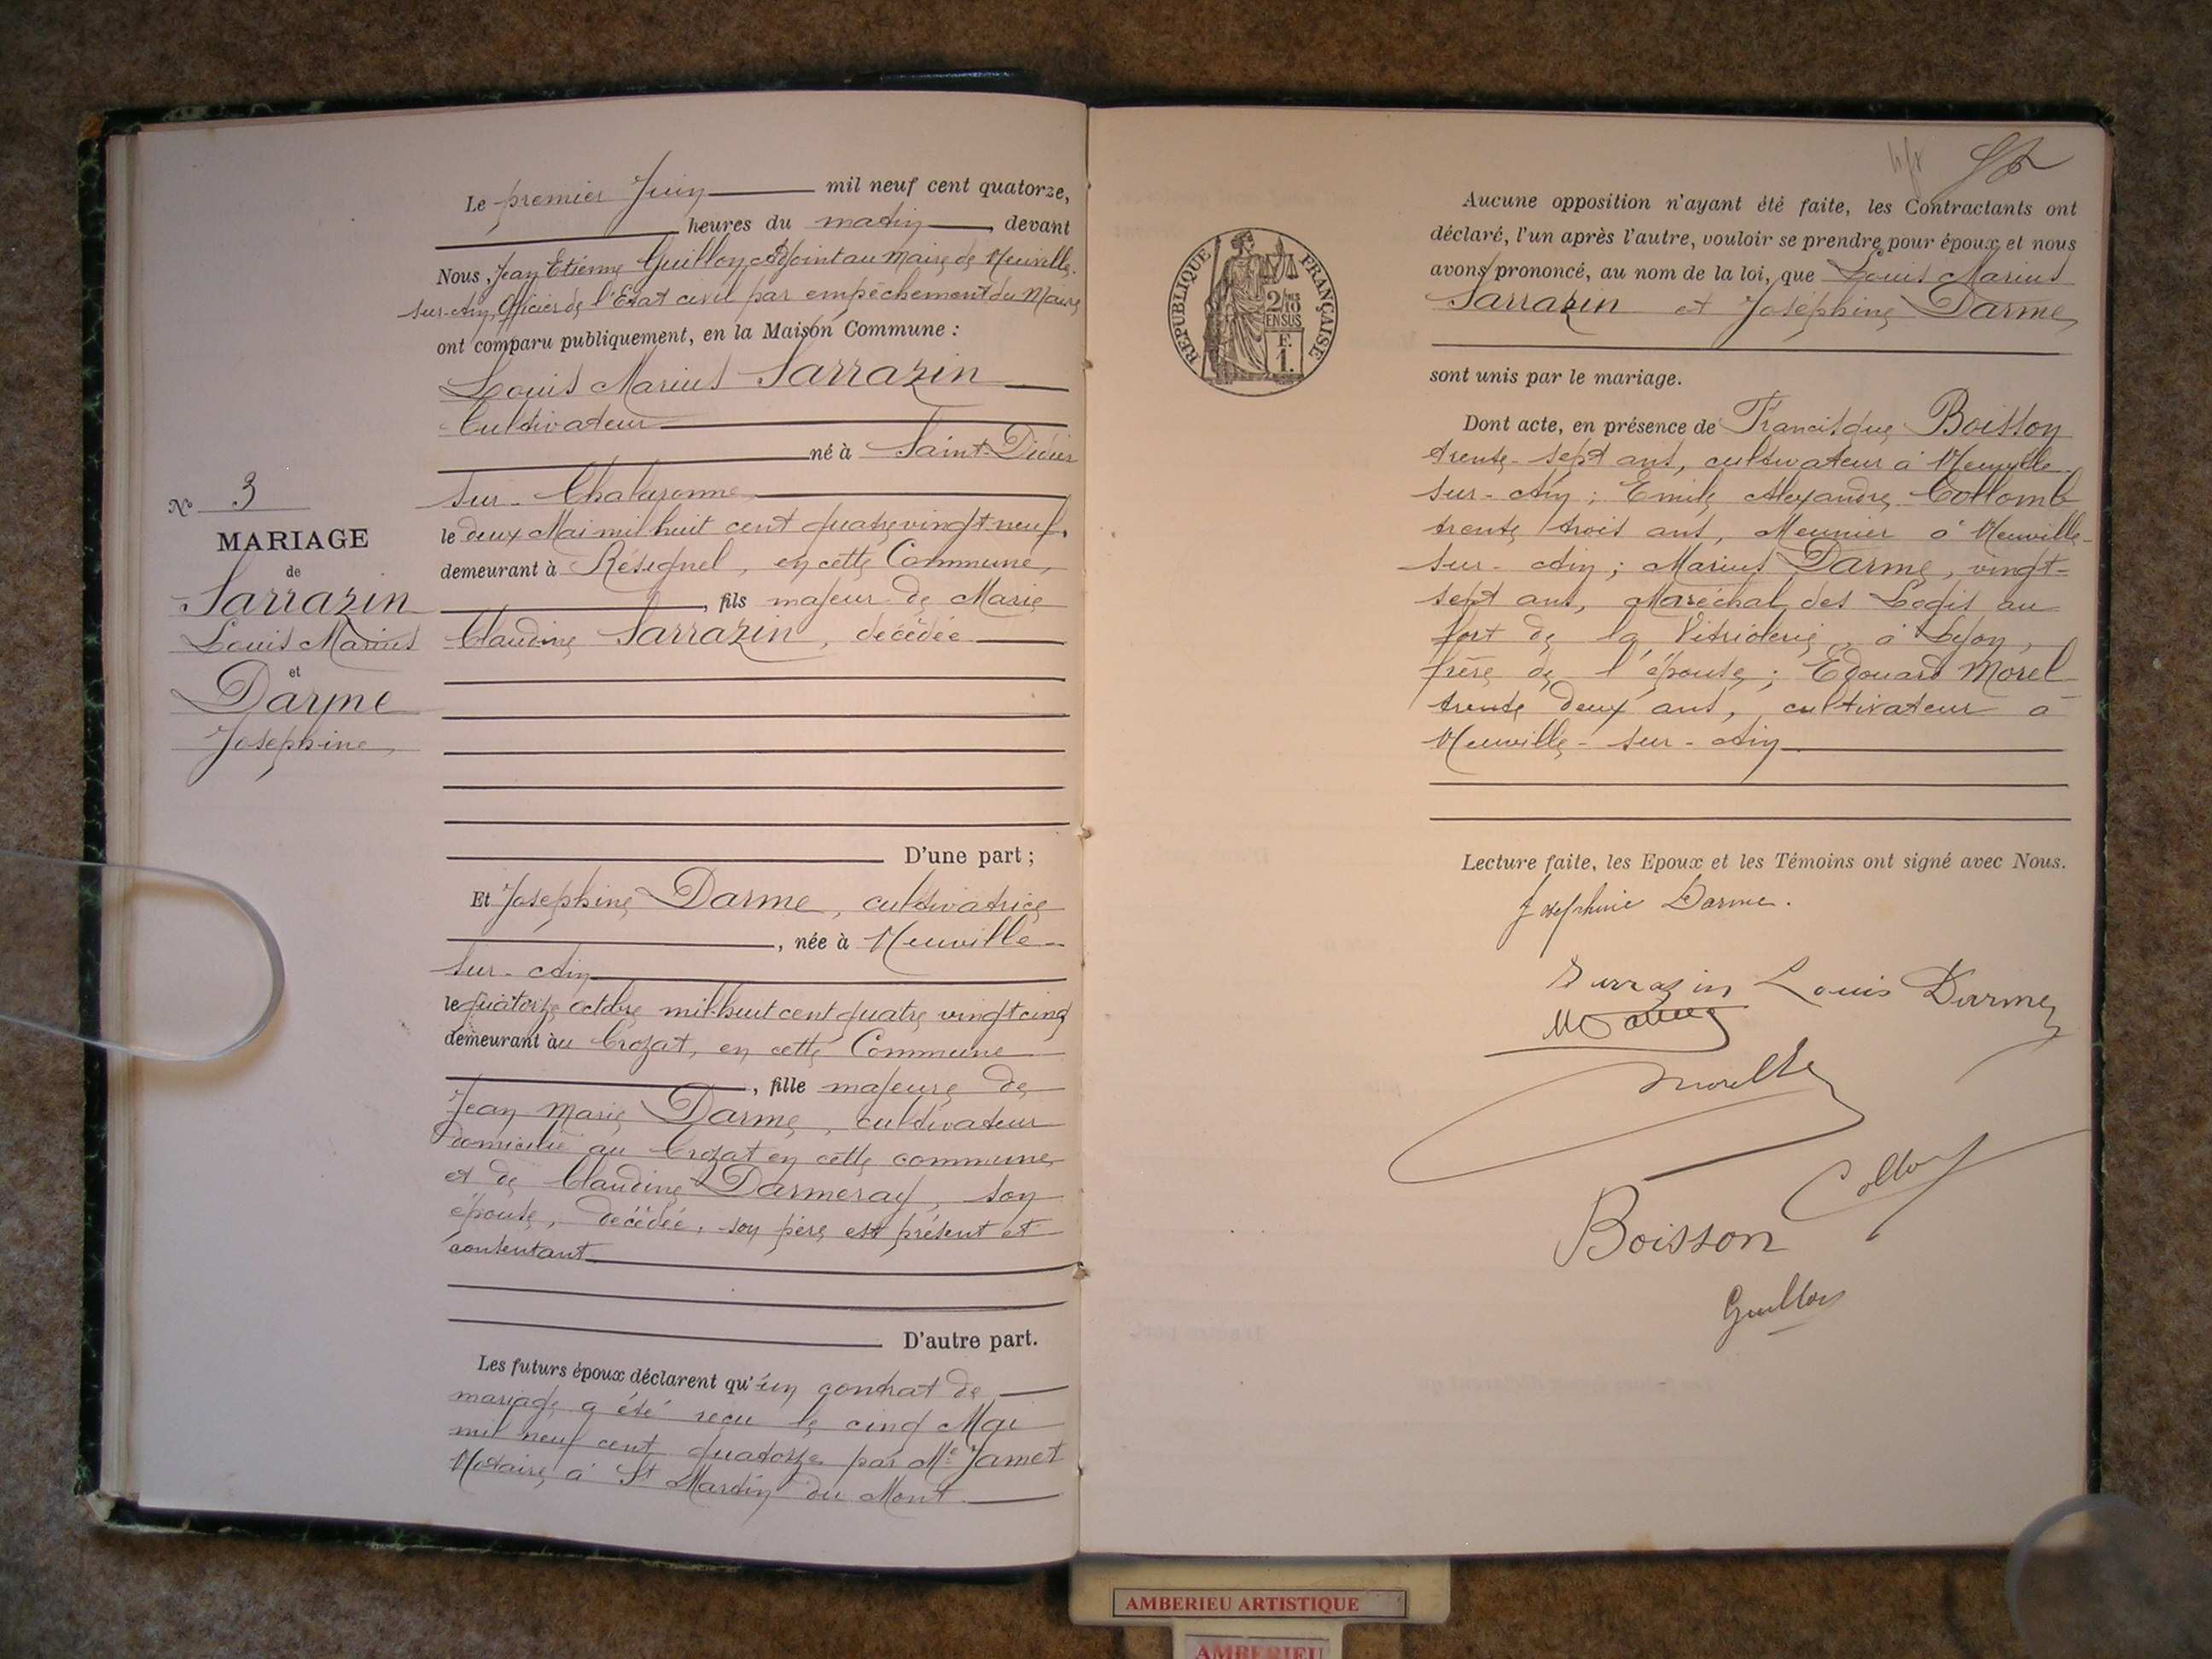 Le premier Juin mil neuf cent quatorze,
heures du matin, devant
Nous, Jean Etienne Guillon, Adjoint au Maire de Neuville-
sur-Ain, Officier de l'Etat civil par empêchement du Maire
ont comparu publiquement, en la Maison Commune :
Louis Marius Sarrazin
Cultivateur
né à Saint-Didier
sur-Chalaronne
le deux Mai mil huit cent quatre vingt neuf,
demeurant à Résignel, en cette Commune,
, fils majeur de Marie
Claudine Sarrazin, décédée
No 3
MARIAGE
de
Sarrazin
Louis Marius
et
Darme
Joséphine
D'une part ;
Et Joséphine Darme, cultivatrice
, née à Neuville-
sur-Ain
le quatorze octobre mil huit cent quatre vingt cinq
demeurant au Crozat, en cette Commune
, fille majeure de
Jean Marie Darme, cultivateur
domicilié au Crozat en cette commune
et de Claudine Darmeray, son
épouse, décédée, son père est présent et
consentant
D'autre part.
Les futurs époux déclarent qu'un contrat de
mariage a été reçu le cinq Mai
mil neuf cent quatorze par Me Jamet
Notaire à St Martin du Mont
RÉPUBLIQUE FRANÇAISE
2/10
EN SUS
F.
1.
Aucune opposition n'ayant été faite, les Contractants ont
déclaré, l'un après l'autre, vouloir se prendre pour époux et nous
avons prononcé, au nom de la loi, que Louis Marius
Sarrazin et Joséphine Darme
sont unis par le mariage.
Dont acte, en présence de Francisque Boisson
trente-sept ans, cultivateur à Neuville-
sur-Ain ; Emile Alexandre Collomb
trente trois ans, Meunier à Neuville-
sur-Ain ; Marius Darme, vingt-
sept ans, Maréchal des Logis au
fort de la Vitriolerie, à Lyon,
frère de l'épouse ; Edouard Morel
trente deux ans, cultivateur à
Neuville-sur-Ain
Lecture faite, les Epoux et les Témoins ont signé avec Nous.
Josephine Darme.
Sarrazin Louis Darme
Boisson
Guillon
AMBERIEU ARTISTIQUE
AMBERIEU